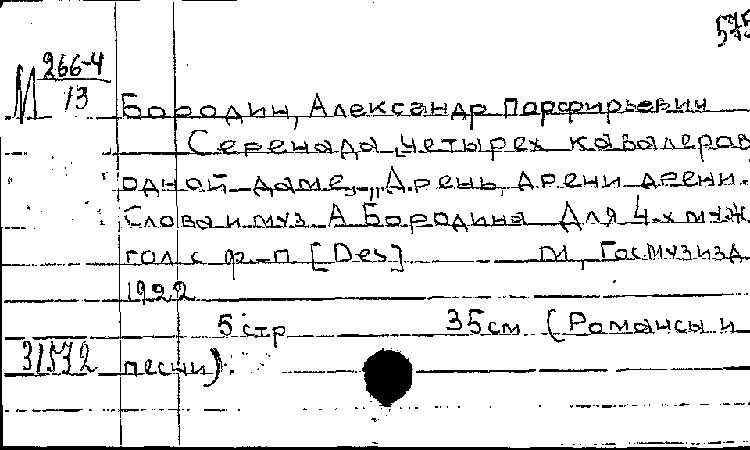 575
М 266-4
13
Бородин, Александр Порфирьевич
Серенада четырех кавалеров
одной даме, „Дрень, дрени дрени.
Слова и муз. А Бородина Для 4-х муж
гол с ф-п [Des] М, Госмузизд
1922
5 стр 35 см (Романсы и
31572 песни).